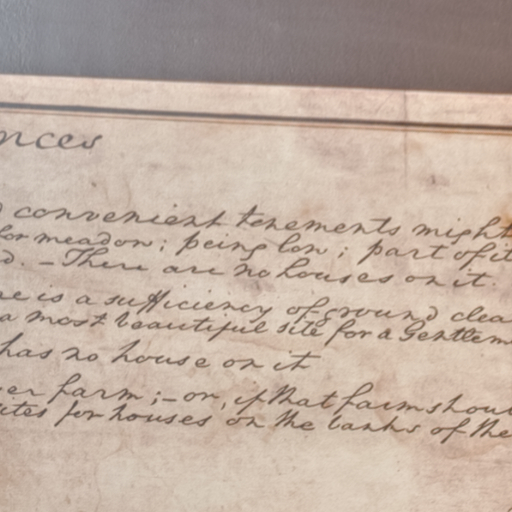 nces
convenient tenements might
for meadow; being low; part of it
d. - There are no houses on it.
re is a sufficiency of ground clea
a most beautiful site for a Gentlem
has no house on it
er farm; - or, if that farm shou
ites for houses on the banks of the